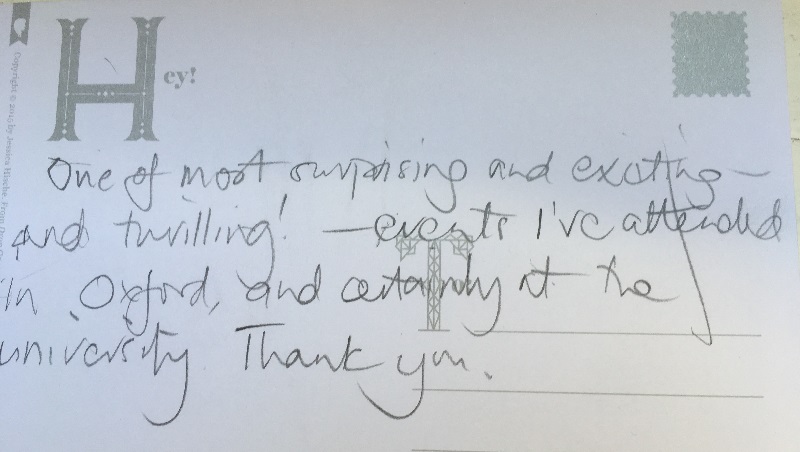 Hey!
Copyright © 2010 by Jessica Hische. From Drop Ca
One of most surprising and exciting –
and thrilling! – events I've attended
in Oxford, and certainly at the
university Thank you.